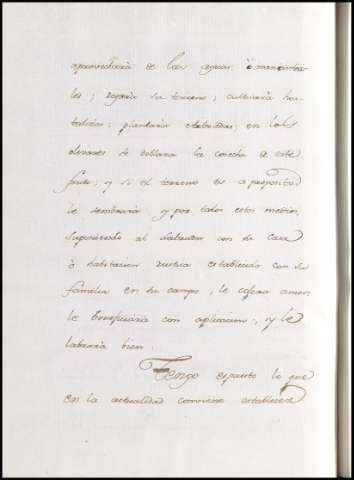 aprovecharia de las aguas, ò manantia-
les; regaria su terreno; cultivaria hor-
talizas; plantaria arboledas; en los
olivares se doblara la cosecha a este
fruto; y si el terreno es a proposito
le sembrará y por todos estos medios,
suponiendo al Labrador con su casa
ò habitacion rustica establecido con su
familia en su campo, le cobra amor,
le beneficiaria con aplicacion; y le
labraria bien.
Tengo expuesto lo que
en la actualidad conviene establecer